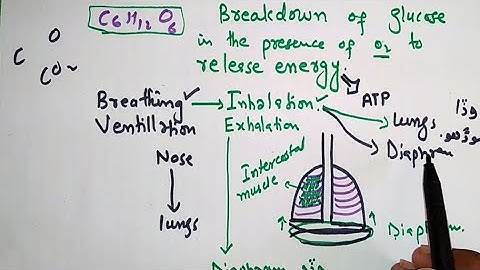 C6H12O6
Breakdown of glucose
in the presence of O2 to
release energy.
C O
CO2
ATP
Breathing → Inhalation
Ventillation Exhalation
Lungs
Diaphram
Nose
lungs
Intercostal
muscle
Diaphram.